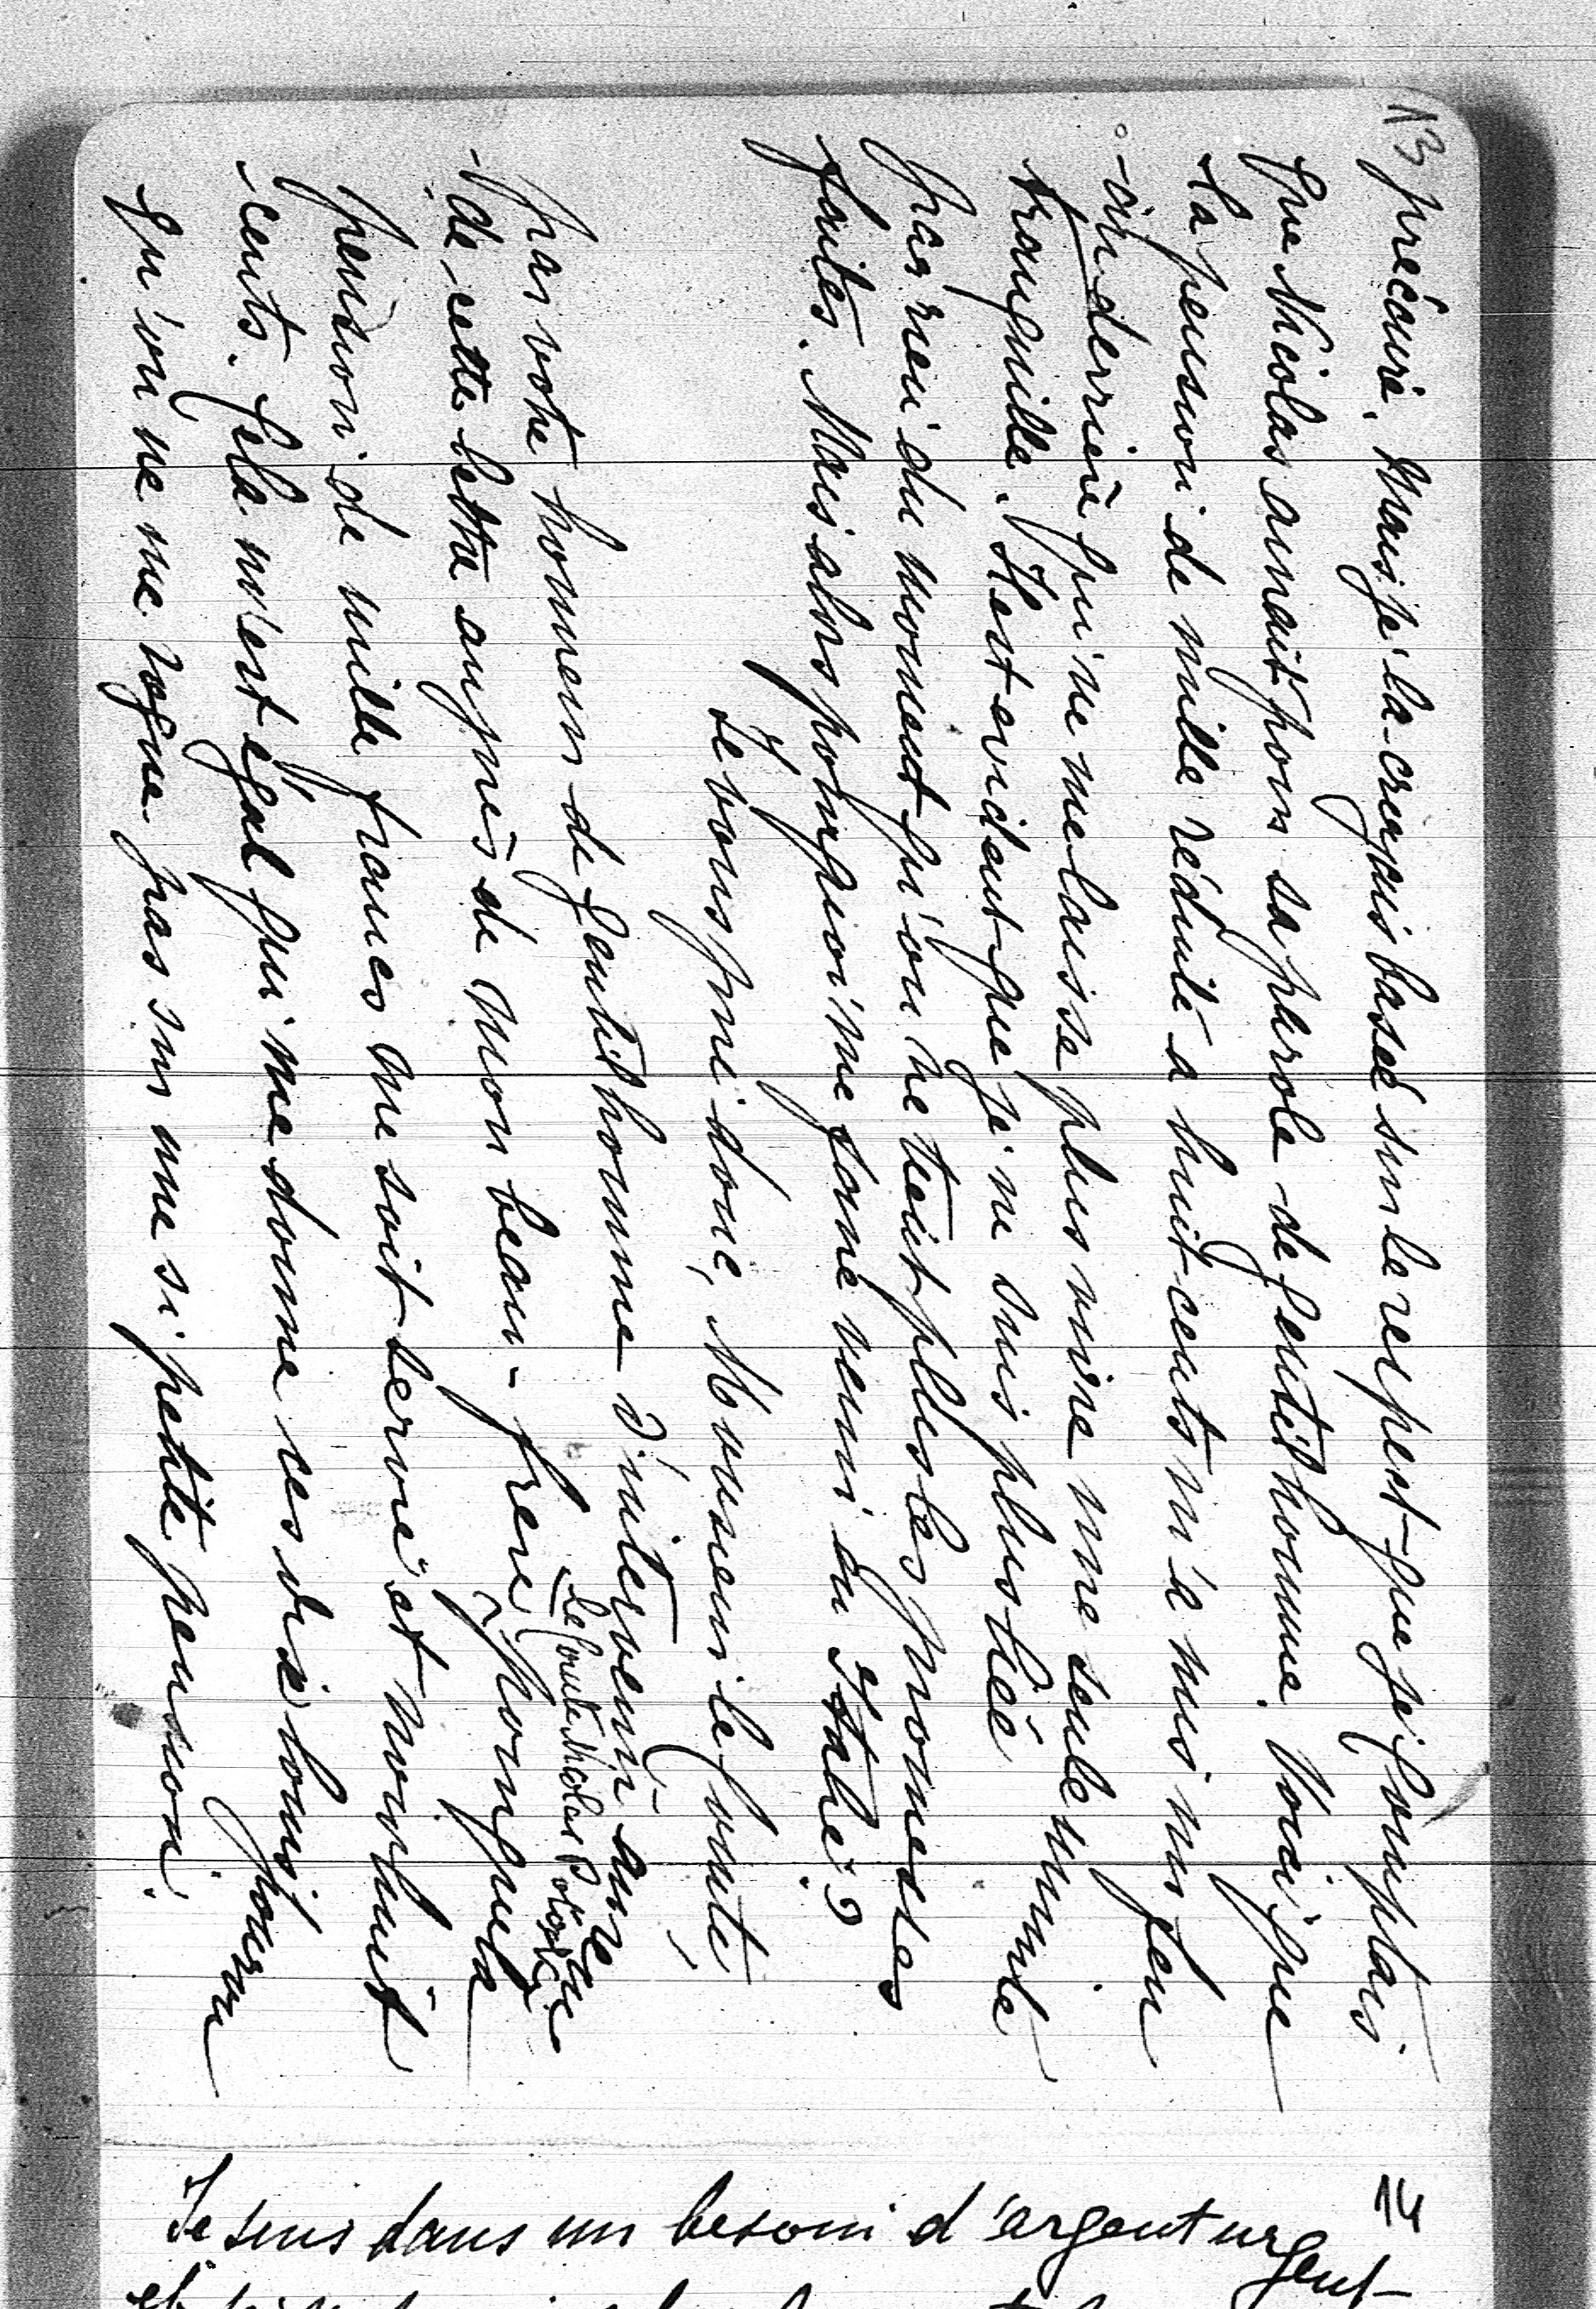 13
précaire. Mais je la croyais basée sur le respect que je comptais
que Nicolas aurait pour sa parole de gentilhomme. Voici que
la pension de mille réduite à huit-cents m'a mis un feu
au derrière qui ne me laisse plus vivre une seule minute
tranquille. Il est evident que je ne suis plus liée
par rien du moment qu'on ne tient plus les promesses
faites. Mais alors pourquoi me faire venir en Italie?
Je vous prie donc, Monsieur le Comte,
par votre honneur de gentilhomme d'intervenir au reçu
de cette lettre auprès de mon beau-frère, le Comte Nicolas
pour que la
pension de mille francs me soit servie et non huit
cents. Cela m'est égal qui me donne ces dix louis pourvu
qu'on ne me rogne pas sur une si petite pension.
14
Je suis dans un besoin d'argent urgent